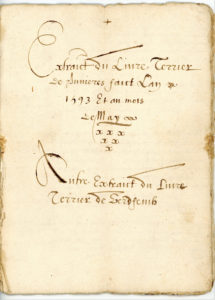 Extraict du Livre Terrier
de pumeres faict Lan
1593 Et au mois
de May
Autre Extraict du Livre
Terrier de